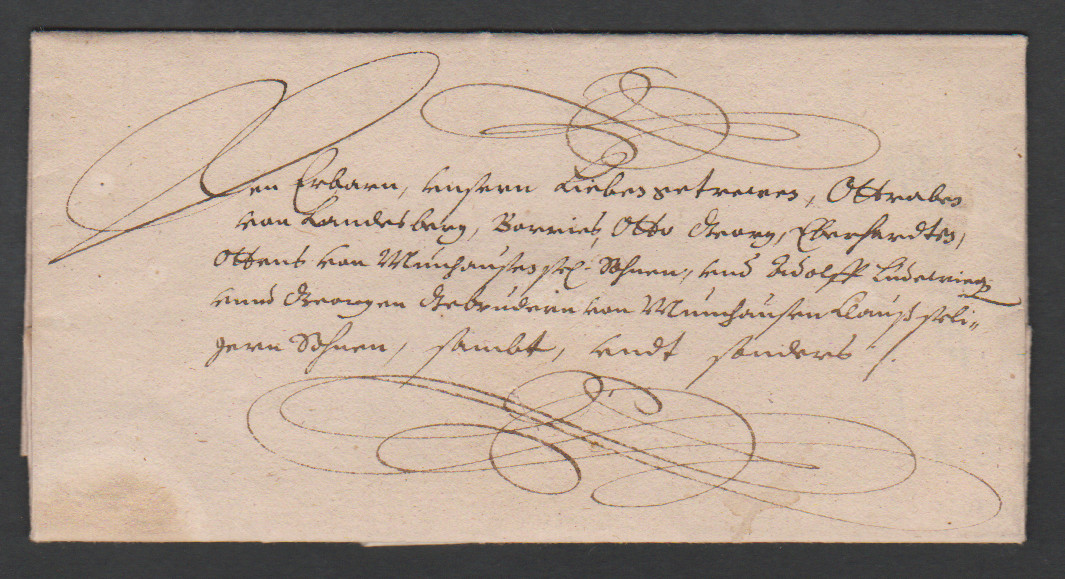 Den Erbarn, unsern Lieben getrewen, Ottraben
von Landesberg, Borries, Otto Georg, Eberhardten,
Ottens von Munchausen sel. Söhnen, und Adolff Ludewieg
unnd Georgen Gebrudern von Munchausen Clauß seli„
gern Söhnen, sambt, undt sonders.